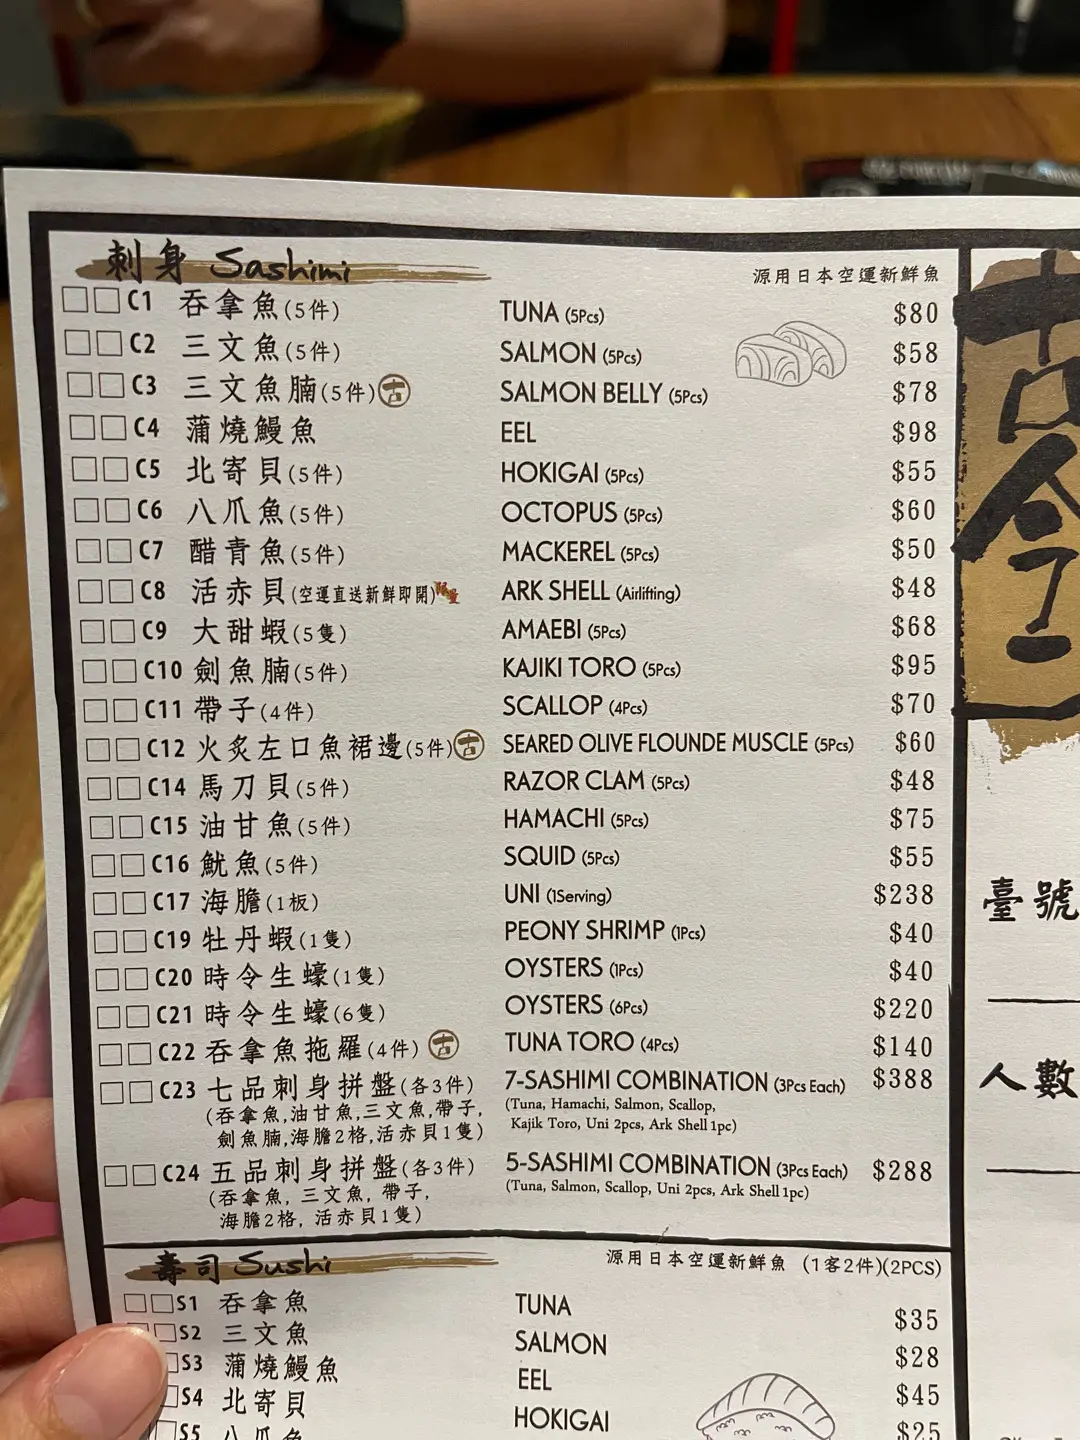 刺身 Sashimi 源用日本空運新鮮魚
C1 吞拿魚(5件) TUNA (5Pcs) $80
C2 三文魚(5件) SALMON (5Pcs) $58
C3 三文魚腩(5件) 古 SALMON BELLY (5Pcs) $78
C4 蒲燒鰻魚 EEL $98
C5 北寄貝(5件) HOKIGAI (5Pcs) $55
C6 八爪魚(5件) OCTOPUS (5Pcs) $60
C7 醋青魚(5件) MACKEREL (5Pcs) $50
C8 活赤貝(空運直送新鮮即開) ARK SHELL (Airlifting) $48
C9 大甜蝦(5隻) AMAEBI (5Pcs) $68
C10 劍魚腩(5件) KAJIKI TORO (5Pcs) $95
C11 帶子(4件) SCALLOP (4Pcs) $70
C12 火炙左口魚裙邊(5件) 古 SEARED OLIVE FLOUNDE MUSCLE (5Pcs) $60
C14 馬刀貝(5件) RAZOR CLAM (5Pcs) $48
C15 油甘魚(5件) HAMACHI (5Pcs) $75
C16 魷魚(5件) SQUID (5Pcs) $55
C17 海膽(1板) UNI (1Serving) $238
C19 牡丹蝦(1隻) PEONY SHRIMP (1Pcs) $40
C20 時令生蠔(1隻) OYSTERS (1Pcs) $40
C21 時令生蠔(6隻) OYSTERS (6Pcs) $220
C22 吞拿魚拖羅(4件) 古 TUNA TORO (4Pcs) $140
C23 七品刺身拼盤(各3件) 7-SASHIMI COMBINATION (3Pcs Each) $388
(吞拿魚,油甘魚,三文魚,帶子, (Tuna, Hamachi, Salmon, Scallop,
劍魚腩,海膽2格,活赤貝1隻) Kajik Toro, Uni 2pcs, Ark Shell 1pc)
C24 五品刺身拼盤(各3件) 5-SASHIMI COMBINATION (3Pcs Each) $288
(吞拿魚, 三文魚, 帶子, (Tuna, Salmon, Scallop, Uni 2pcs, Ark Shell 1pc)
海膽2格, 活赤貝1隻)
壽司 Sushi 源用日本空運新鮮魚 (1客2件)(2PCS)
S1 吞拿魚 TUNA $35
S2 三文魚 SALMON $28
S3 蒲燒鰻魚 EEL $45
S4 北寄貝 HOKIGAI $25
S5 八爪魚
古今二
臺號
人數